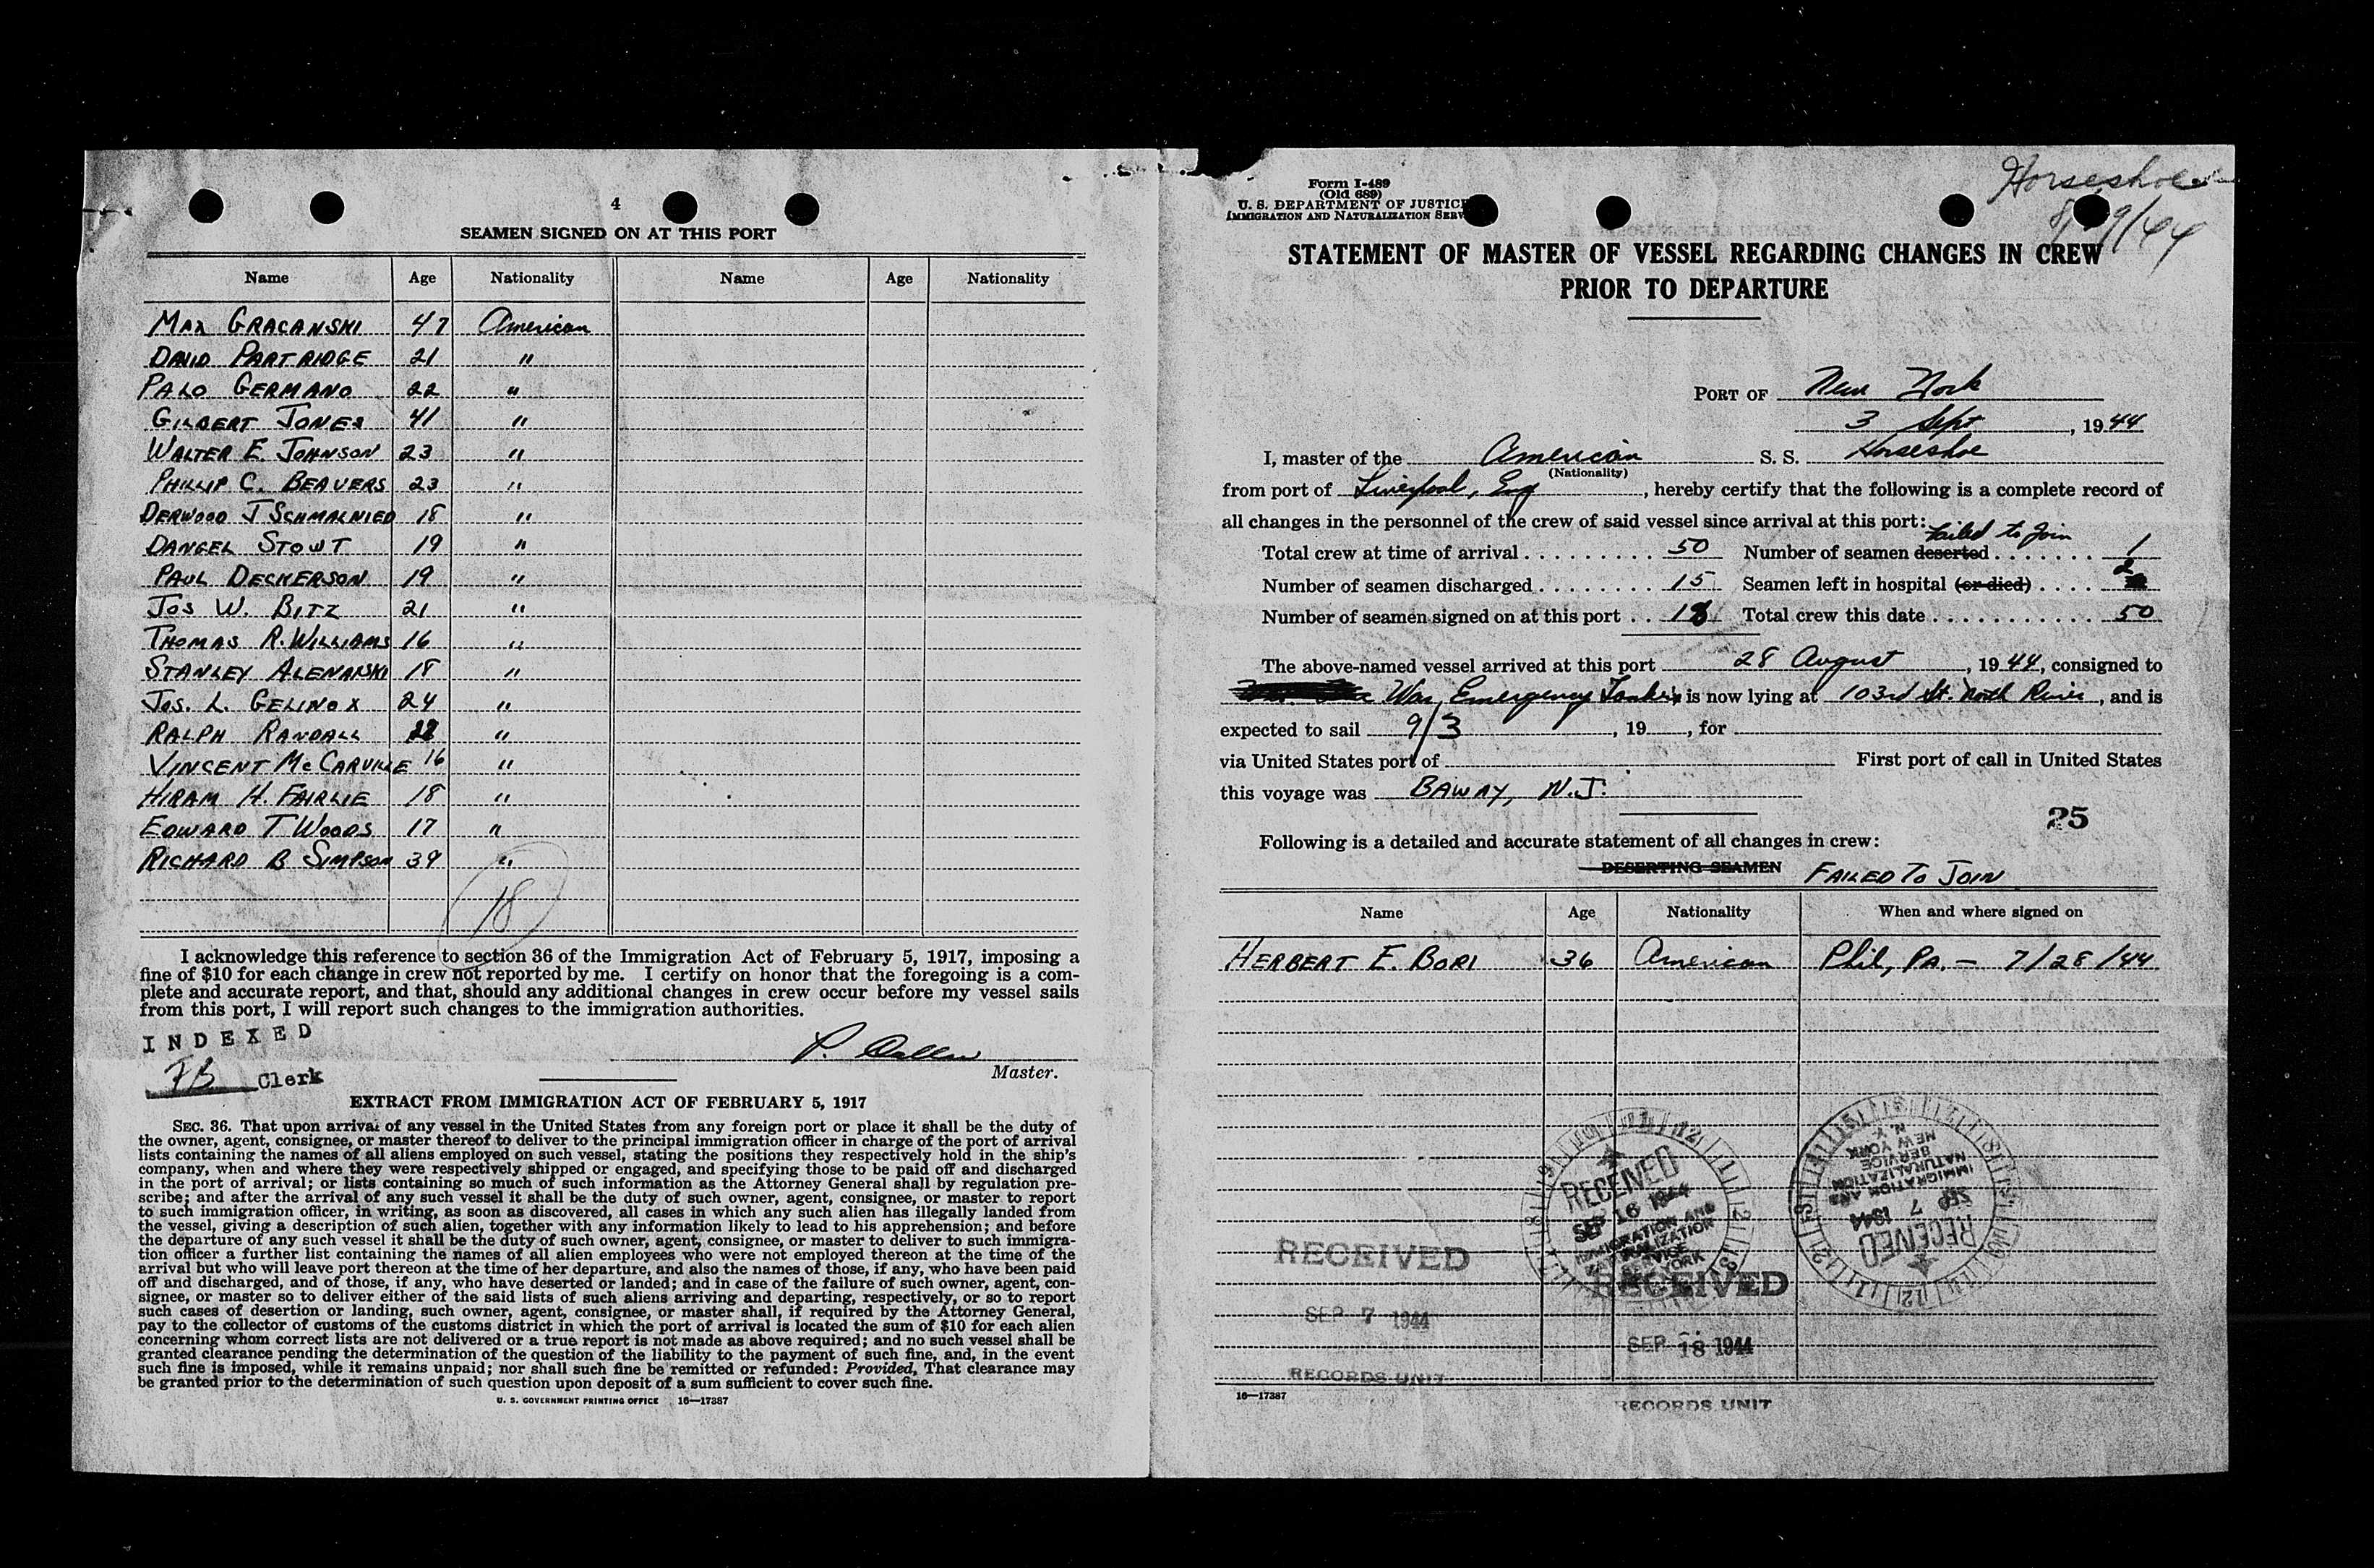 4
SEAMEN SIGNED ON AT THIS PORT
Name Age Nationality Name Age Nationality
MAX GRACANSKI 47 American
DAVID PARTRIDGE 21 "
PALO GERMANO 22 "
GILBERT JONES 41 "
WALTER E. JOHNSON 23 "
PHILLIP C. BEAVERS 23 "
DERWOOD J SCHMALNIED 18 "
DANGEL STOWT 19 "
PAUL DECKERSON 19 "
JOS W. BITZ 21 "
THOMAS R. WILLIAMS 16 "
STANLEY ALENANSKI 18 "
JOS. L. GELINOX 24 "
RALPH RANDALL "
VINCENT McCARVILLE 16 "
HIRAM H. FAIRLIE 18 "
EDWARD T WOODS 17 "
RICHARD B SIMPSON 39 "
18
I acknowledge this reference to section 36 of the Immigration Act of February 5, 1917, imposing a
fine of $10 for each change in crew not reported by me. I certify on honor that the foregoing is a com-
plete and accurate report, and that, should any additional changes in crew occur before my vessel sails
from this port, I will report such changes to the immigration authorities.
INDEXED
FB Clerk
P.
Master.
EXTRACT FROM IMMIGRATION ACT OF FEBRUARY 5, 1917
SEC. 36. That upon arrival of any vessel in the United States from any foreign port or place it shall be the duty of
the owner, agent, consignee, or master thereof to deliver to the principal immigration officer in charge of the port of arrival
lists containing the names of all aliens employed on such vessel, stating the positions they respectively hold in the ship's
company, when and where they were respectively shipped or engaged, and specifying those to be paid off and discharged
in the port of arrival; or lists containing so much of such information as the Attorney General shall by regulation pre-
scribe; and after the arrival of any such vessel it shall be the duty of such owner, agent, consignee, or master to report
to such immigration officer, in writing, as soon as discovered, all cases in which any such alien has illegally landed from
the vessel, giving a description of such alien, together with any information likely to lead to his apprehension; and before
the departure of any such vessel it shall be the duty of such owner, agent, consignee, or master to deliver to such immigra-
tion officer a further list containing the names of all alien employees who were not employed thereon at the time of the
arrival but who will leave port thereon at the time of her departure, and also the names of those, if any, who have been paid
off and discharged, and of those, if any, who have deserted or landed; and in case of the failure of such owner, agent, con-
signee, or master so to deliver either of the said lists of such aliens arriving and departing, respectively, or so to report
such cases of desertion or landing, such owner, agent, consignee, or master shall, if required by the Attorney General,
pay to the collector of customs of the customs district in which the port of arrival is located the sum of $10 for each alien
concerning whom correct lists are not delivered or a true report is not made as above required; and no such vessel shall be
granted clearance pending the determination of the question of the liability to the payment of such fine, and, in the event
such fine is imposed, while it remains unpaid; nor shall such fine be remitted or refunded: Provided, That clearance may
be granted prior to the determination of such question upon deposit of a sum sufficient to cover such fine.
U. S. GOVERNMENT PRINTING OFFICE 16—17387
Form I-489
(Old 689)
U. S. DEPARTMENT OF JUSTICE
IMMIGRATION AND NATURALIZATION SERV
Horseshoe
STATEMENT OF MASTER OF VESSEL REGARDING CHANGES IN CREW
PRIOR TO DEPARTURE
PORT OF New York
3 Sept, 1944
I, master of the American S. S. Horseshoe
(Nationality)
from port of Liverpool, Eng, hereby certify that the following is a complete record of
all changes in the personnel of the crew of said vessel since arrival at this port:
failed to join
Total crew at time of arrival . . . . . . . . . 50 Number of seamen deserted . . . . . . . 1
Number of seamen discharged . . . . . . . . 15 Seamen left in hospital (or died) . . . . 2
Number of seamen signed on at this port . . 18 Total crew this date . . . . . . . . . . . . 50
The above-named vessel arrived at this port 28 August, 1944, consigned to
War Emergency Tankers is now lying at 103rd St. North River, and is
expected to sail 9/3, 19 , for
via United States port of First port of call in United States
this voyage was BAWAY, N.J.
25
Following is a detailed and accurate statement of all changes in crew:
DESERTING SEAMEN FAILED TO JOIN
Name Age Nationality When and where signed on
HERBERT E. BORI 36 American Phil, PA. — 7/28/44
RECEIVED
SEP 16 1944
IMMIGRATION AND
NATURALIZATION
SERVICE
NEW YORK
RECEIVED
SEP 7 1944
IMMIGRATION AND
NATURALIZATION
SERVICE
NEW YORK
N. Y.
RECEIVED
SEP 7 1944
RECORDS UNIT
RECEIVED
SEP 18 1944
RECORDS UNIT
16—17387